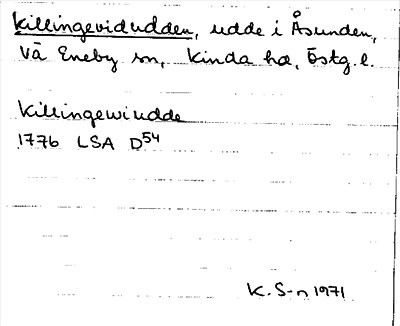 Killingevidudden, udde i Åsunden,
Vä Eneby sn, Kinda hd, Östg. l.
Killingewiudde
1776 LSA D54
K. S-n 1971